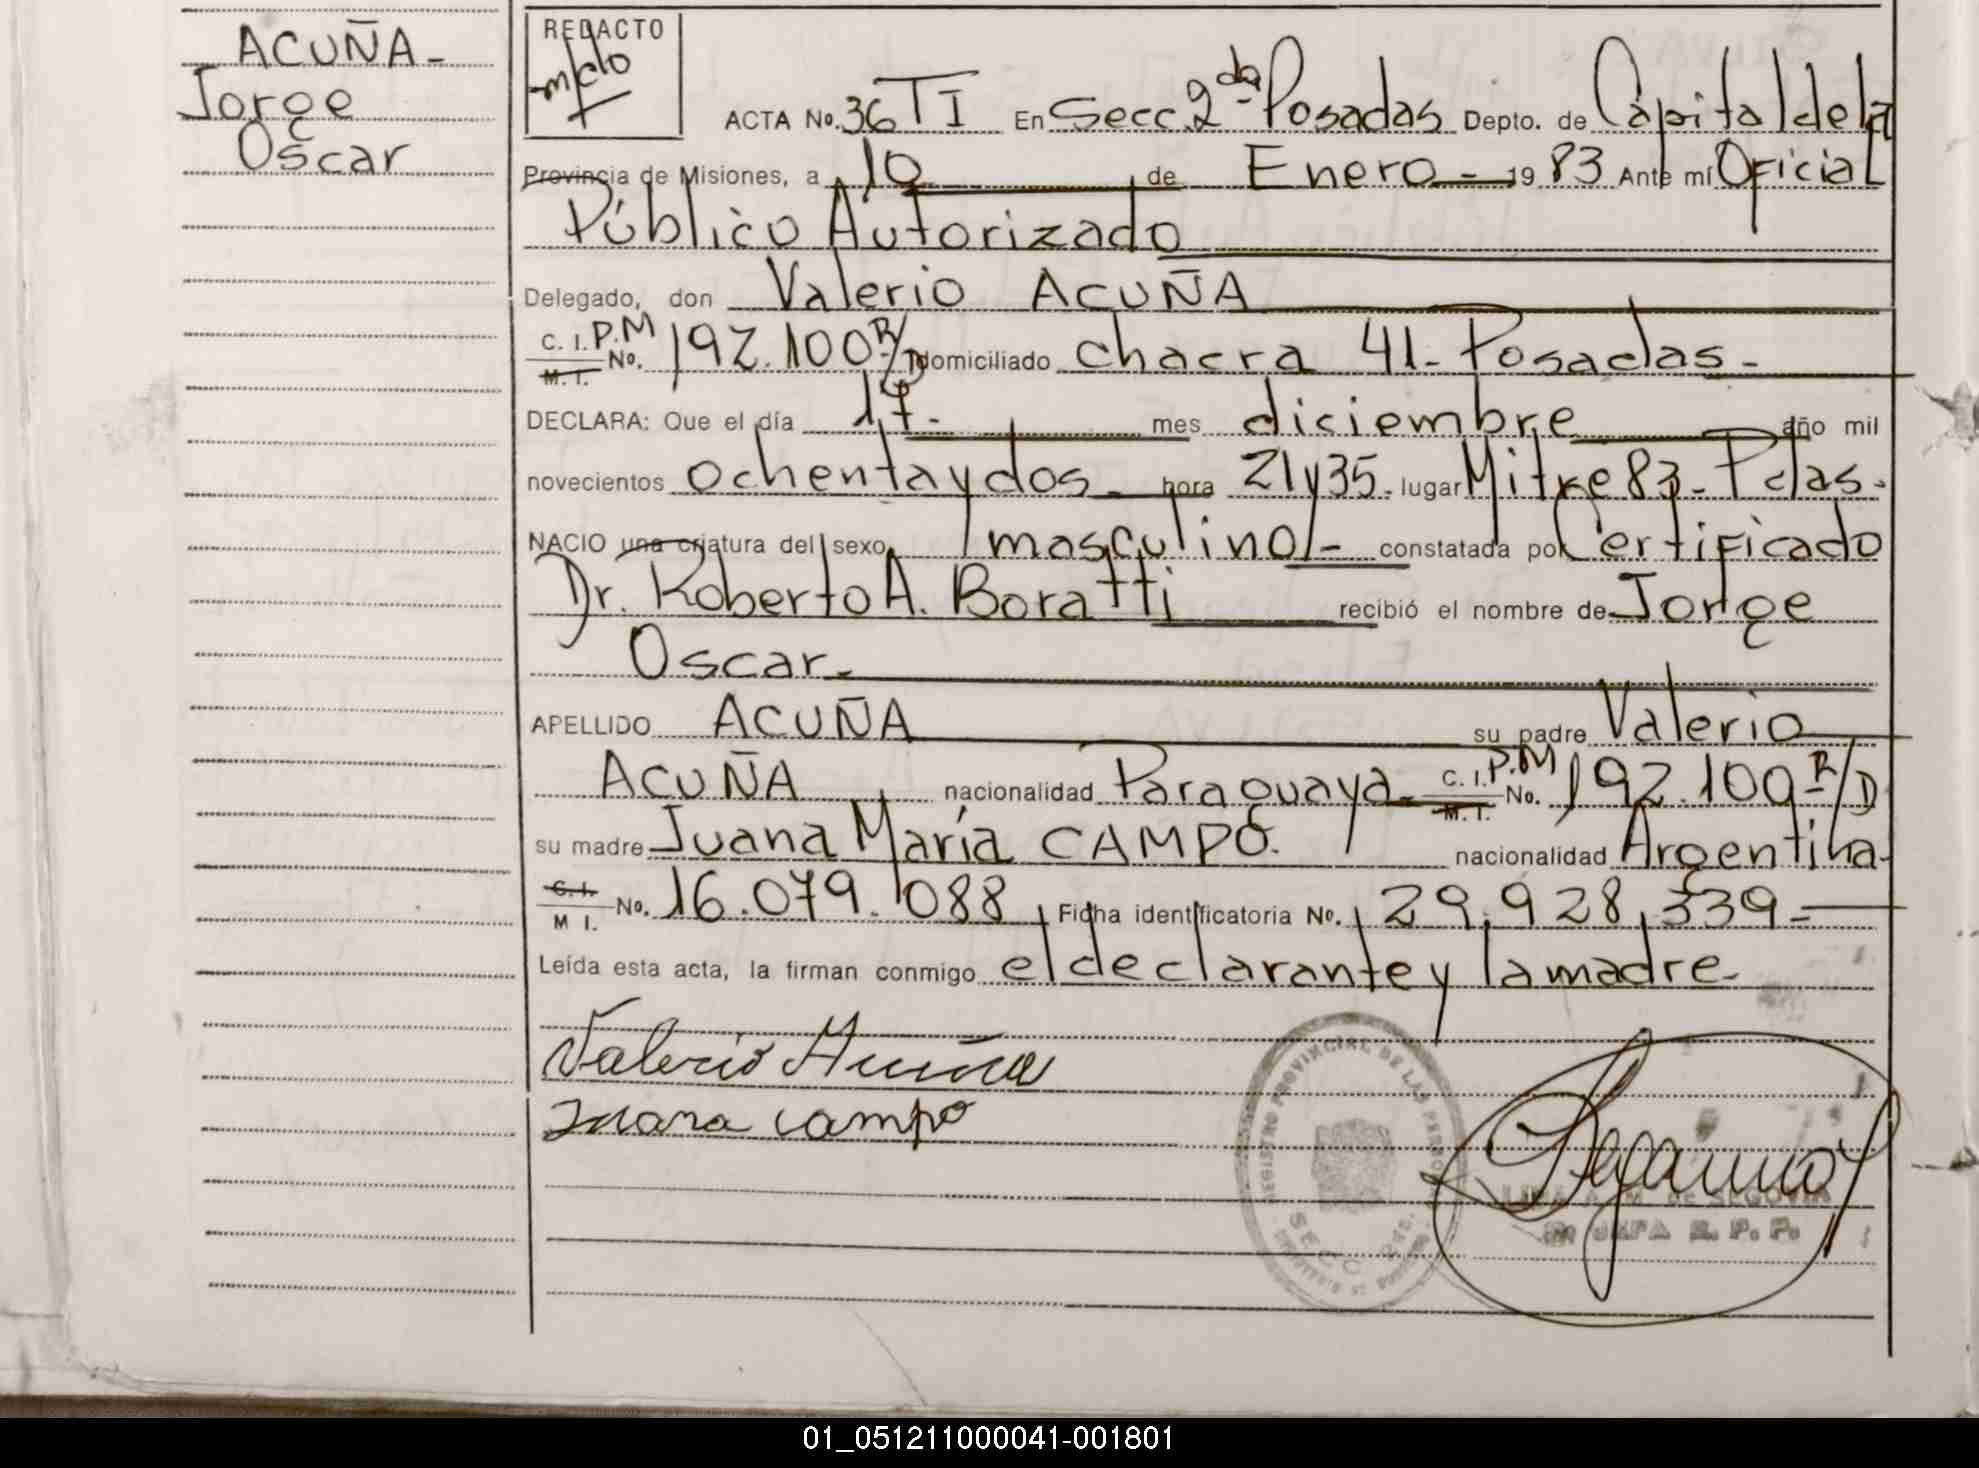 ACUÑA-
Jorge
Oscar
REDACTO
ACTA No. 36 TI En Secc. 2da Posadas Depto. de Capital de la
Provincia de Misiones, a 10 de Enero - 1983 Ante mí Oficial
Público Autorizado
Delegado, don Valerio ACUÑA
C. I. P.M
M. I. No. 192.100 R/D domiciliado chacra 41- Posadas-
DECLARA: Que el día 17- mes diciembre año mil
novecientos ochenta y dos- hora 21 y 35. lugar Mitre 83- Pdas.
NACIO una criatura del sexo masculino/- constatada por Certificado
Dr. Roberto A. Boratti recibió el nombre de Jorge
Oscar-
APELLIDO ACUÑA su padre Valerio
ACUÑA nacionalidad Paraguaya- C. I. P.M
M. I. No. 192.100 R/D
su madre Juana María CAMPO. nacionalidad Argentina-
C. I.
M I. No. 16.079.088 Ficha identificatoria No. 29.928.339-
Leída esta acta, la firman conmigo el declarante y la madre-
Valerio Acuña
Juana Campo
REGISTRO PROVINCIAL DE LAS PERSONAS
SECC.
A. M. DE SEGOVIA
JEFA R. P. P.
01_051211000041-001801